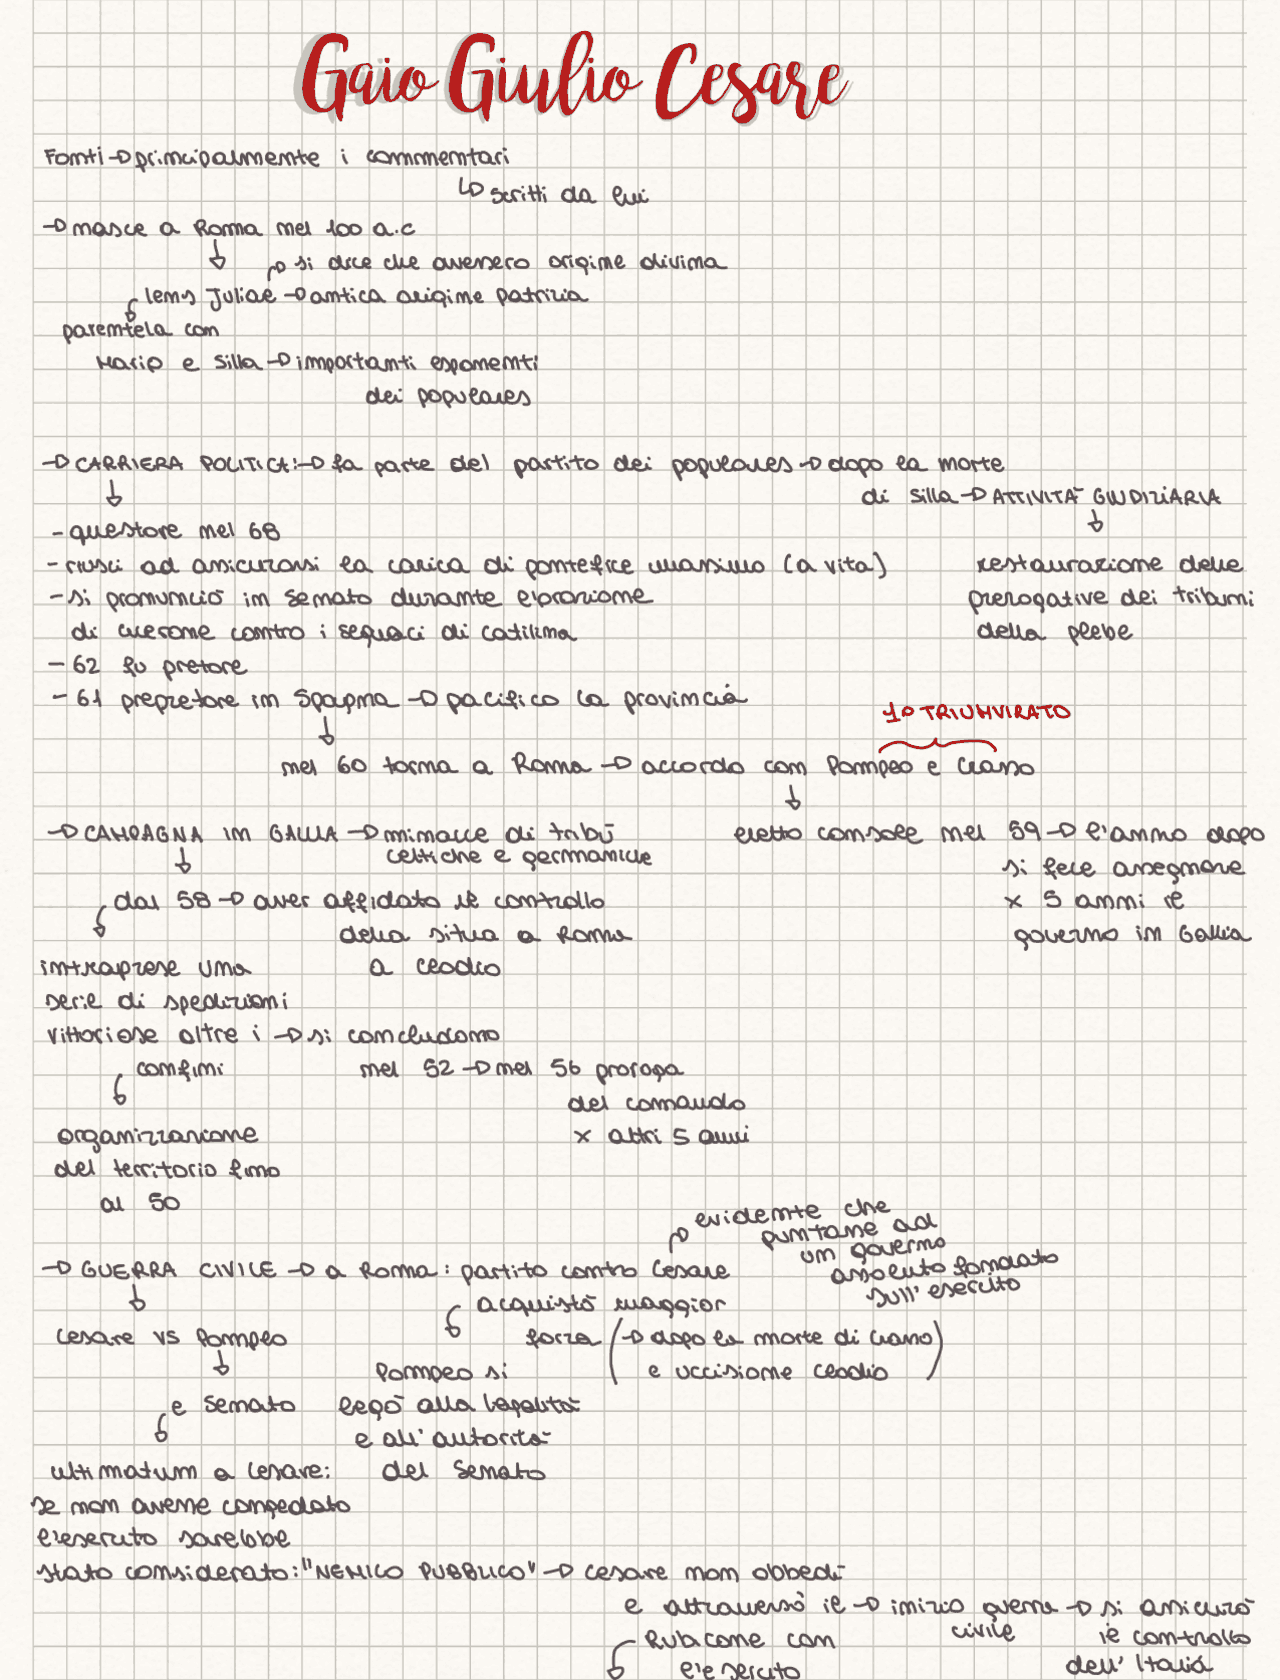 Gaio Giulio Cesare
Fonti → principalmente i commentari
↳ scritti da lui
→ nasce a Roma nel 100 a.c
→ si dice che avessero origine divina
Iens Juliae → antica origine patrizia
parentela con
Mario e Silla → importanti esponenti
dei populares
→ CARRIERA POLITICA: → fa parte del partito dei populares → dopo la morte
di Silla → ATTIVITÀ GIUDIZIARIA
- questore nel 68
- riuscì ad assicurarsi la carica di pontefice massimo (a vita)
restaurazione delle
- si pronunciò in Senato durante l'orazione
prerogative dei tribuni
di cicerone contro i seguaci di catilina
della plebe
- 62 fu pretore
- 61 prepretore in Spagna → pacifico la provincia
1° TRIUMVIRATO
nel 60 torna a Roma → accordo con Pompeo e Crasso
→ CAMPAGNA IN GALLIA → minacce di tribù
celtiche e germaniche
eletto console nel 59 → l'anno dopo
si fece assegnare
x 5 anni il
governo in Gallia
dal 58 → aver affidato il controllo
della situa a Roma
a Clodio
intraprese una
serie di spedizioni
vittoriose oltre i → si concludono
confini
nel 52 → nel 56 proroga
del comando
x altri 5 anni
organizzazione
del territorio fino
al 50
evidente che
puntasse ad
un governo
assoluto fondato
sull'esercito
→ GUERRA CIVILE → a Roma: partito contro Cesare
acquistò maggior
forza (→ dopo la morte di Crasso
e uccisione Clodio)
Cesare vs Pompeo
e Senato
Pompeo si
legò alla legalità
e all'autorità
del Senato
ultimatum a Cesare:
se non avesse congedato
l'esercito sarebbe
stato considerato: "NEMICO PUBBLICO" → Cesare non obbedì
e attraversò il → inizio guerra → si assicurò
Rubicone con
civile
il controllo
l'esercito
dell'Italia